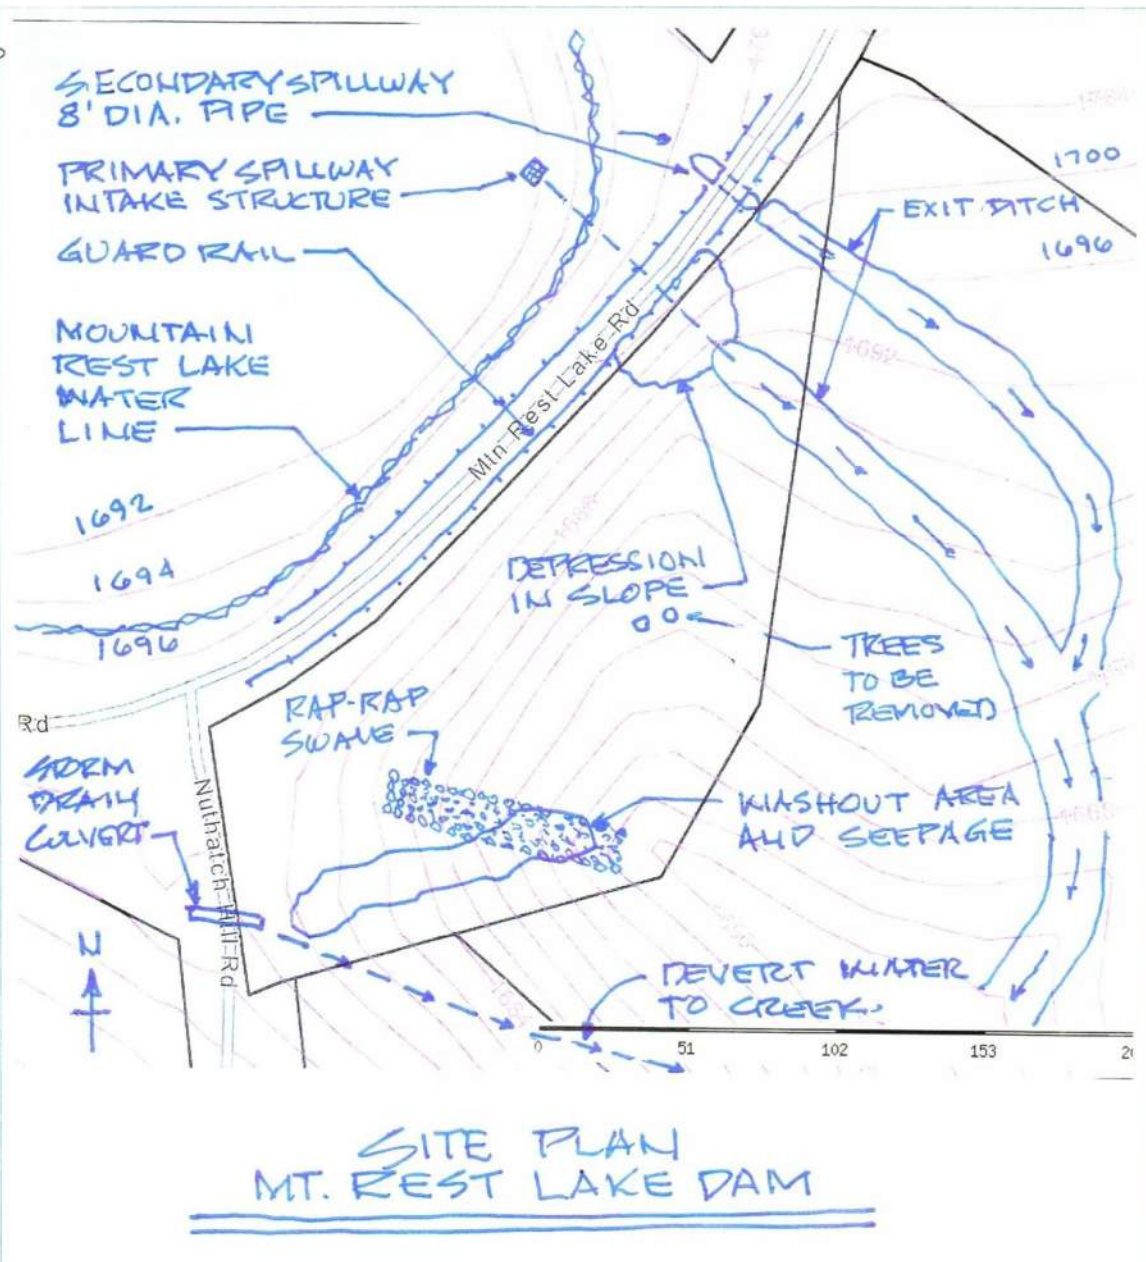 SECONDARY SPILLWAY
8' DIA. PIPE
PRIMARY SPILLWAY
INTAKE STRUCTURE
GUARD RAIL
MOUNTAIN
REST LAKE
WATER
LINE
1692
1694
1696
1700
EXIT DITCH
1696
1692
Mtn Rest Lake Rd
1688
DEPRESSION
IN SLOPE
TREES
TO BE
REMOVED
Rd
RAP-RAP
SWALE
STORM
DRAIN
CULVERT
Nuthatch Hill Rd
WASHOUT AREA
AND SEEPAGE
N
DEVERT WATER
TO CREEK.
0 51 102 153
SITE PLAN
MT. REST LAKE DAM